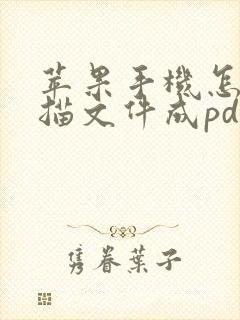 苹果手機怎
描文件成pd
隽眷葉子